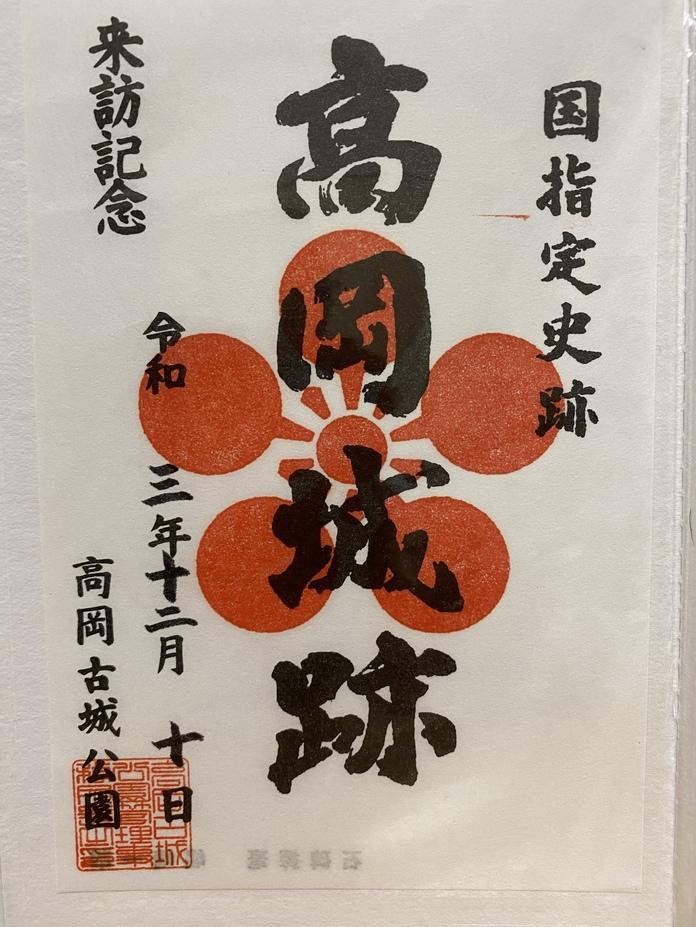 国指定史跡
高岡城跡
来訪記念
令和三年十二月十日
高岡古城公園